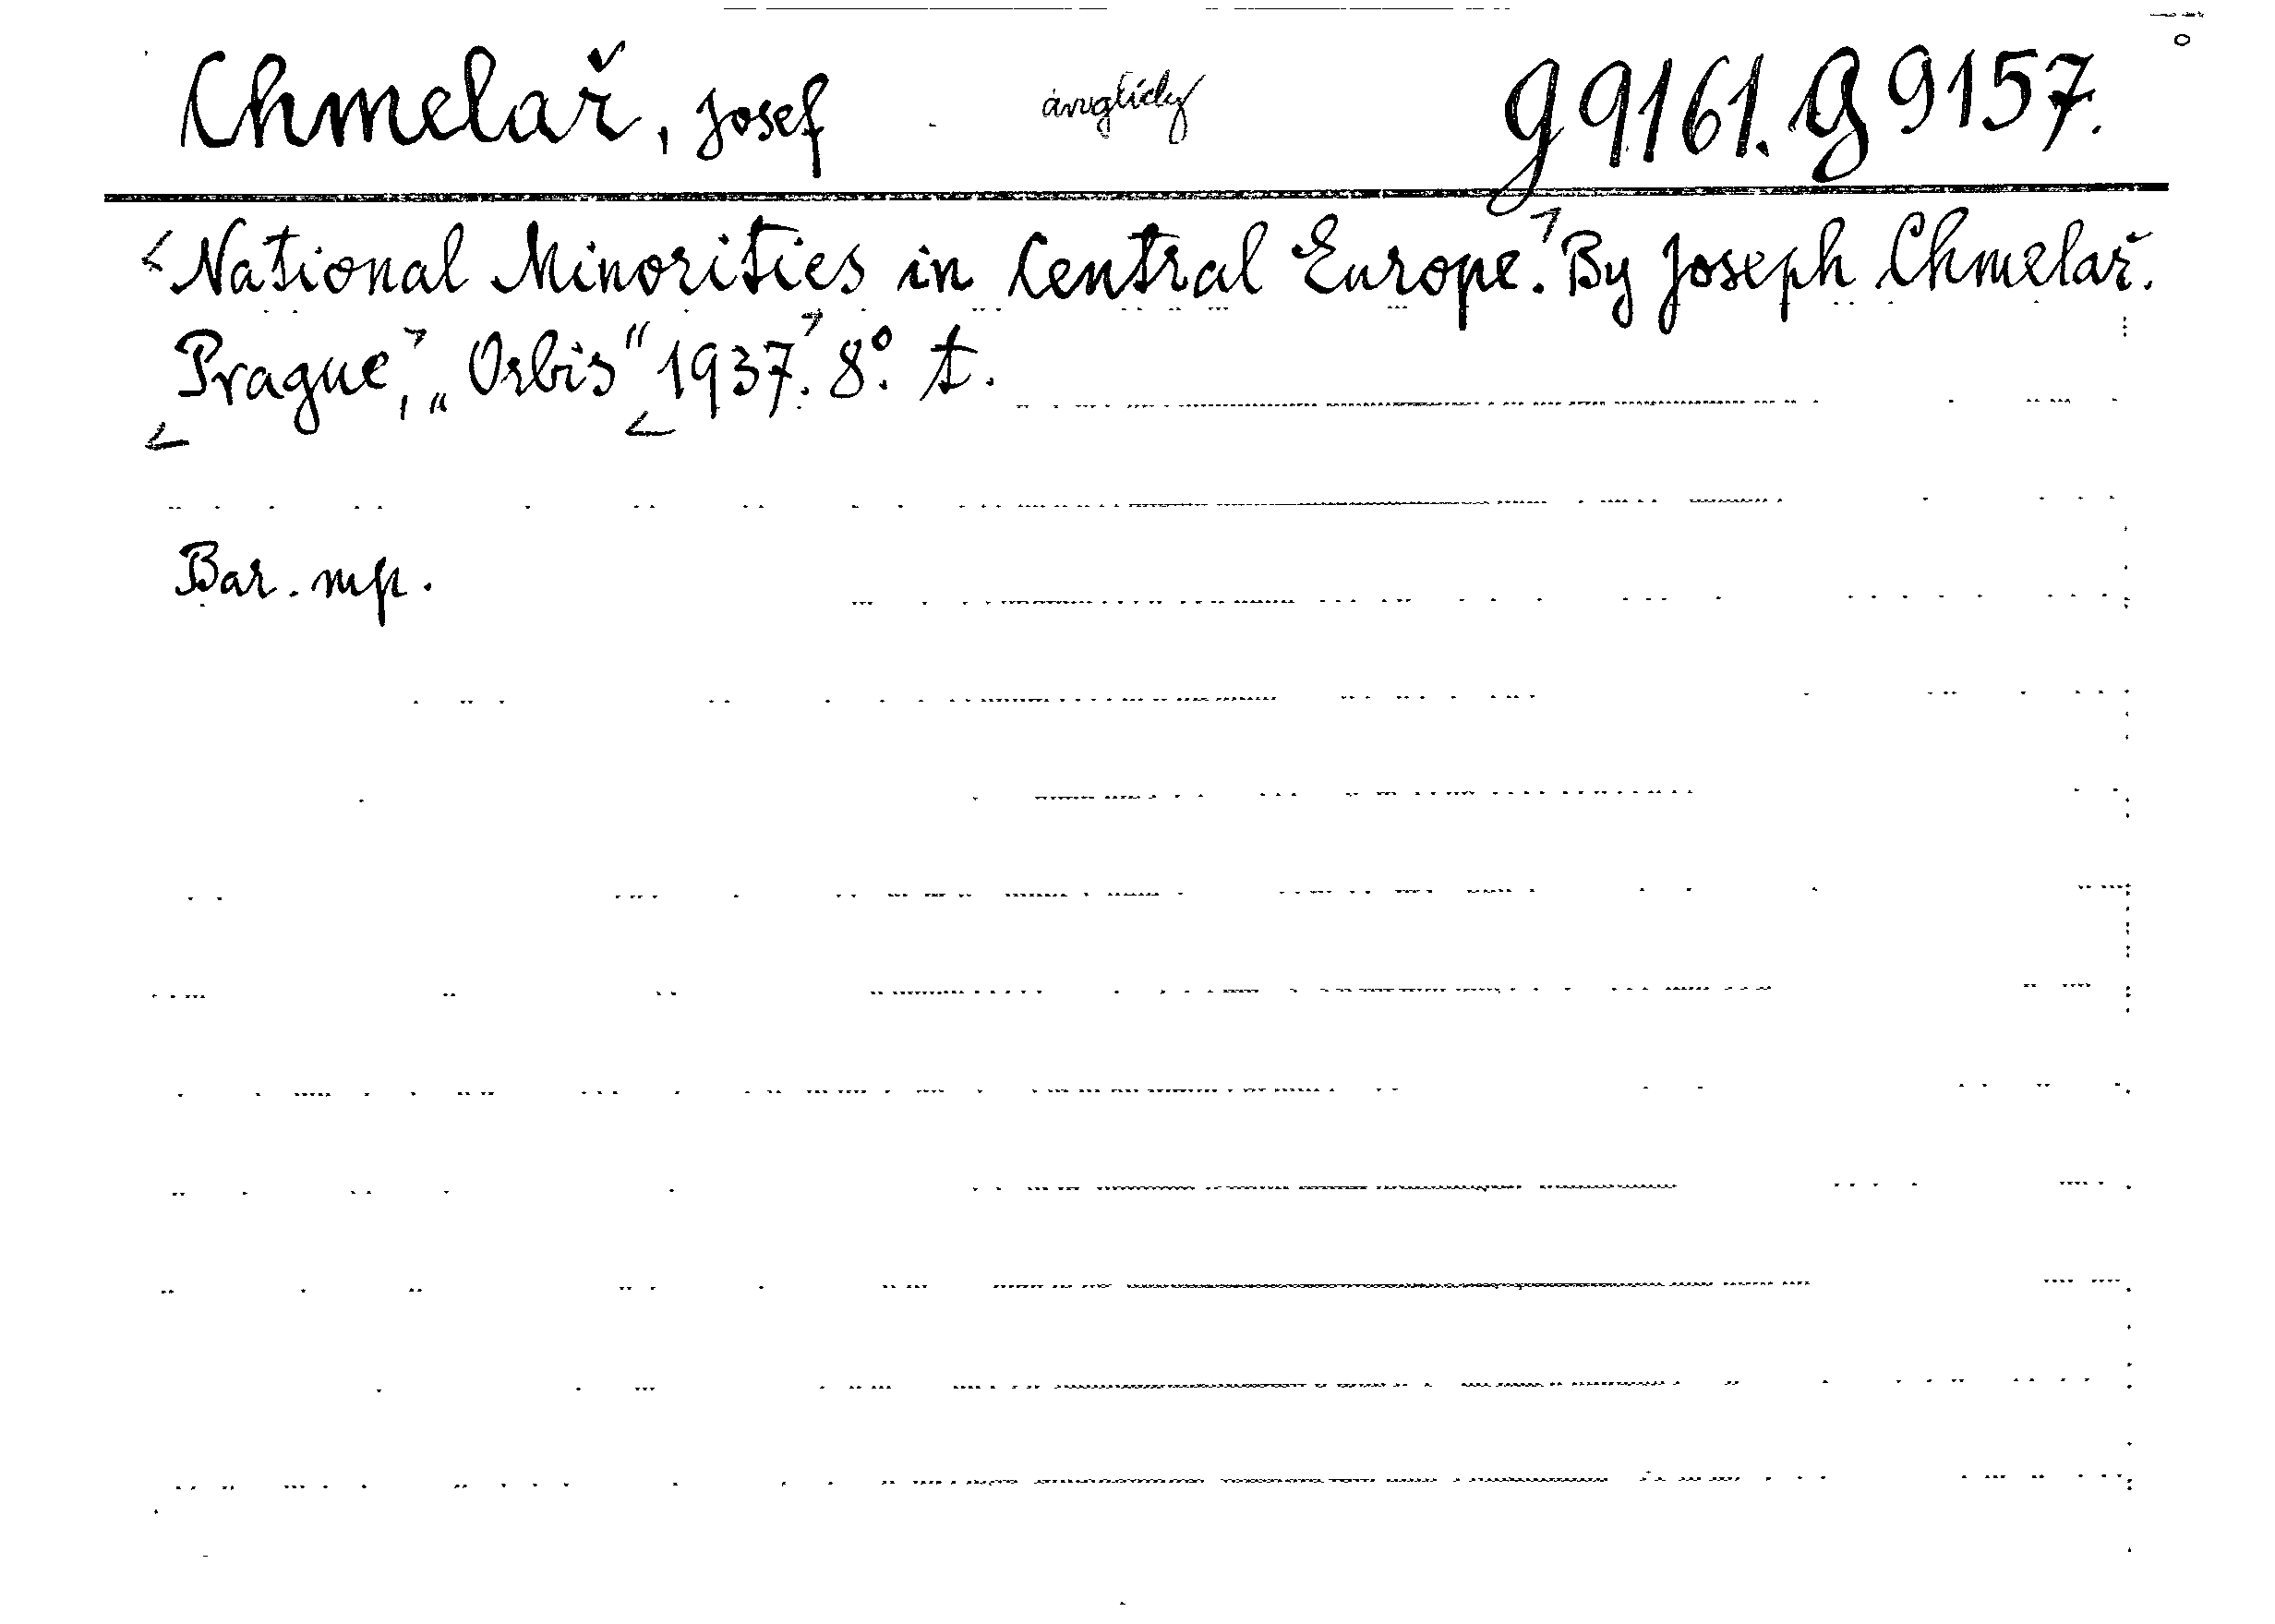 Chmelař, Josef g 9161. g 9157.
<National Minorities in Central Europe.> By Joseph Chmelař.
<Prague,> „Orbis“ <1937.> 8°. t.
Bar. mp.